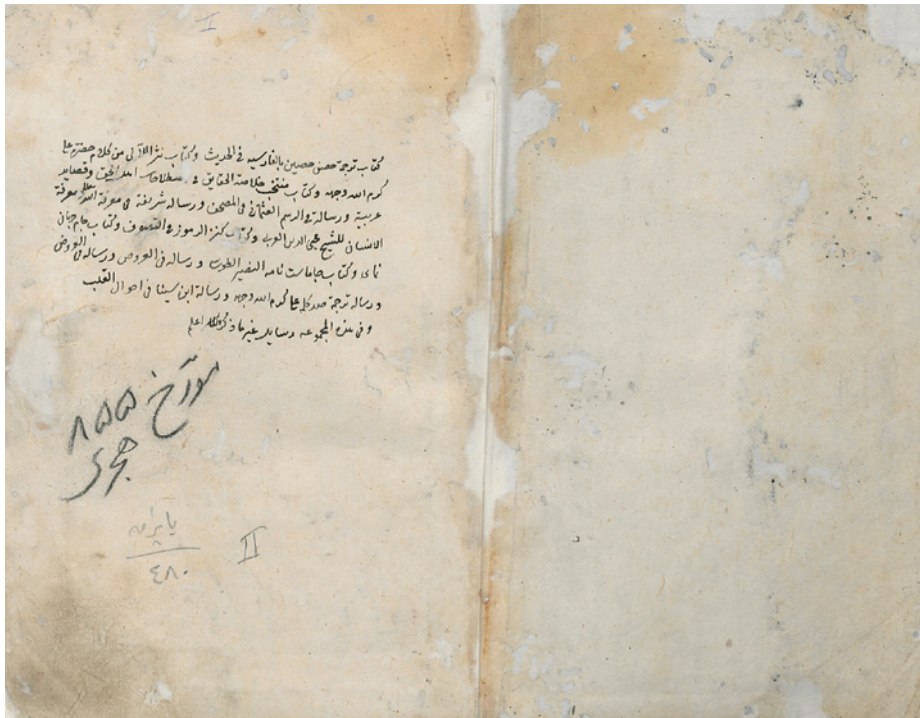 I
كتاب ترجمة حصن حصين بالفارسيه في الحديث وكتاب نثر اللآلى من كلام حضرة علي
كرم الله وجهه وكتاب منتخب خلاصة الحقايق في اصطلاحات اهل الحق وقصايد
عربية ورسالة في الرسم العثماني في المصحف ورساله شريفة في معرفة الله معرفة
الانسان للشيخ محي الدين العربي وكتاب كنز الرموز في التصوف وكتاب جام جهان
نماى وكتاب جامات نامه النصير الطوسى ورساله فى العروض ورساله فى العروض
ورساله ترجمة صد كلمه علي كرم الله وجهه ورسالة ابن سينا فى احوال القلب
وفى هذه المجموعه رسايل غير ما ذكر والله اعلم
مورّخ ٨٥٥
هجرى
II
٤٨٠